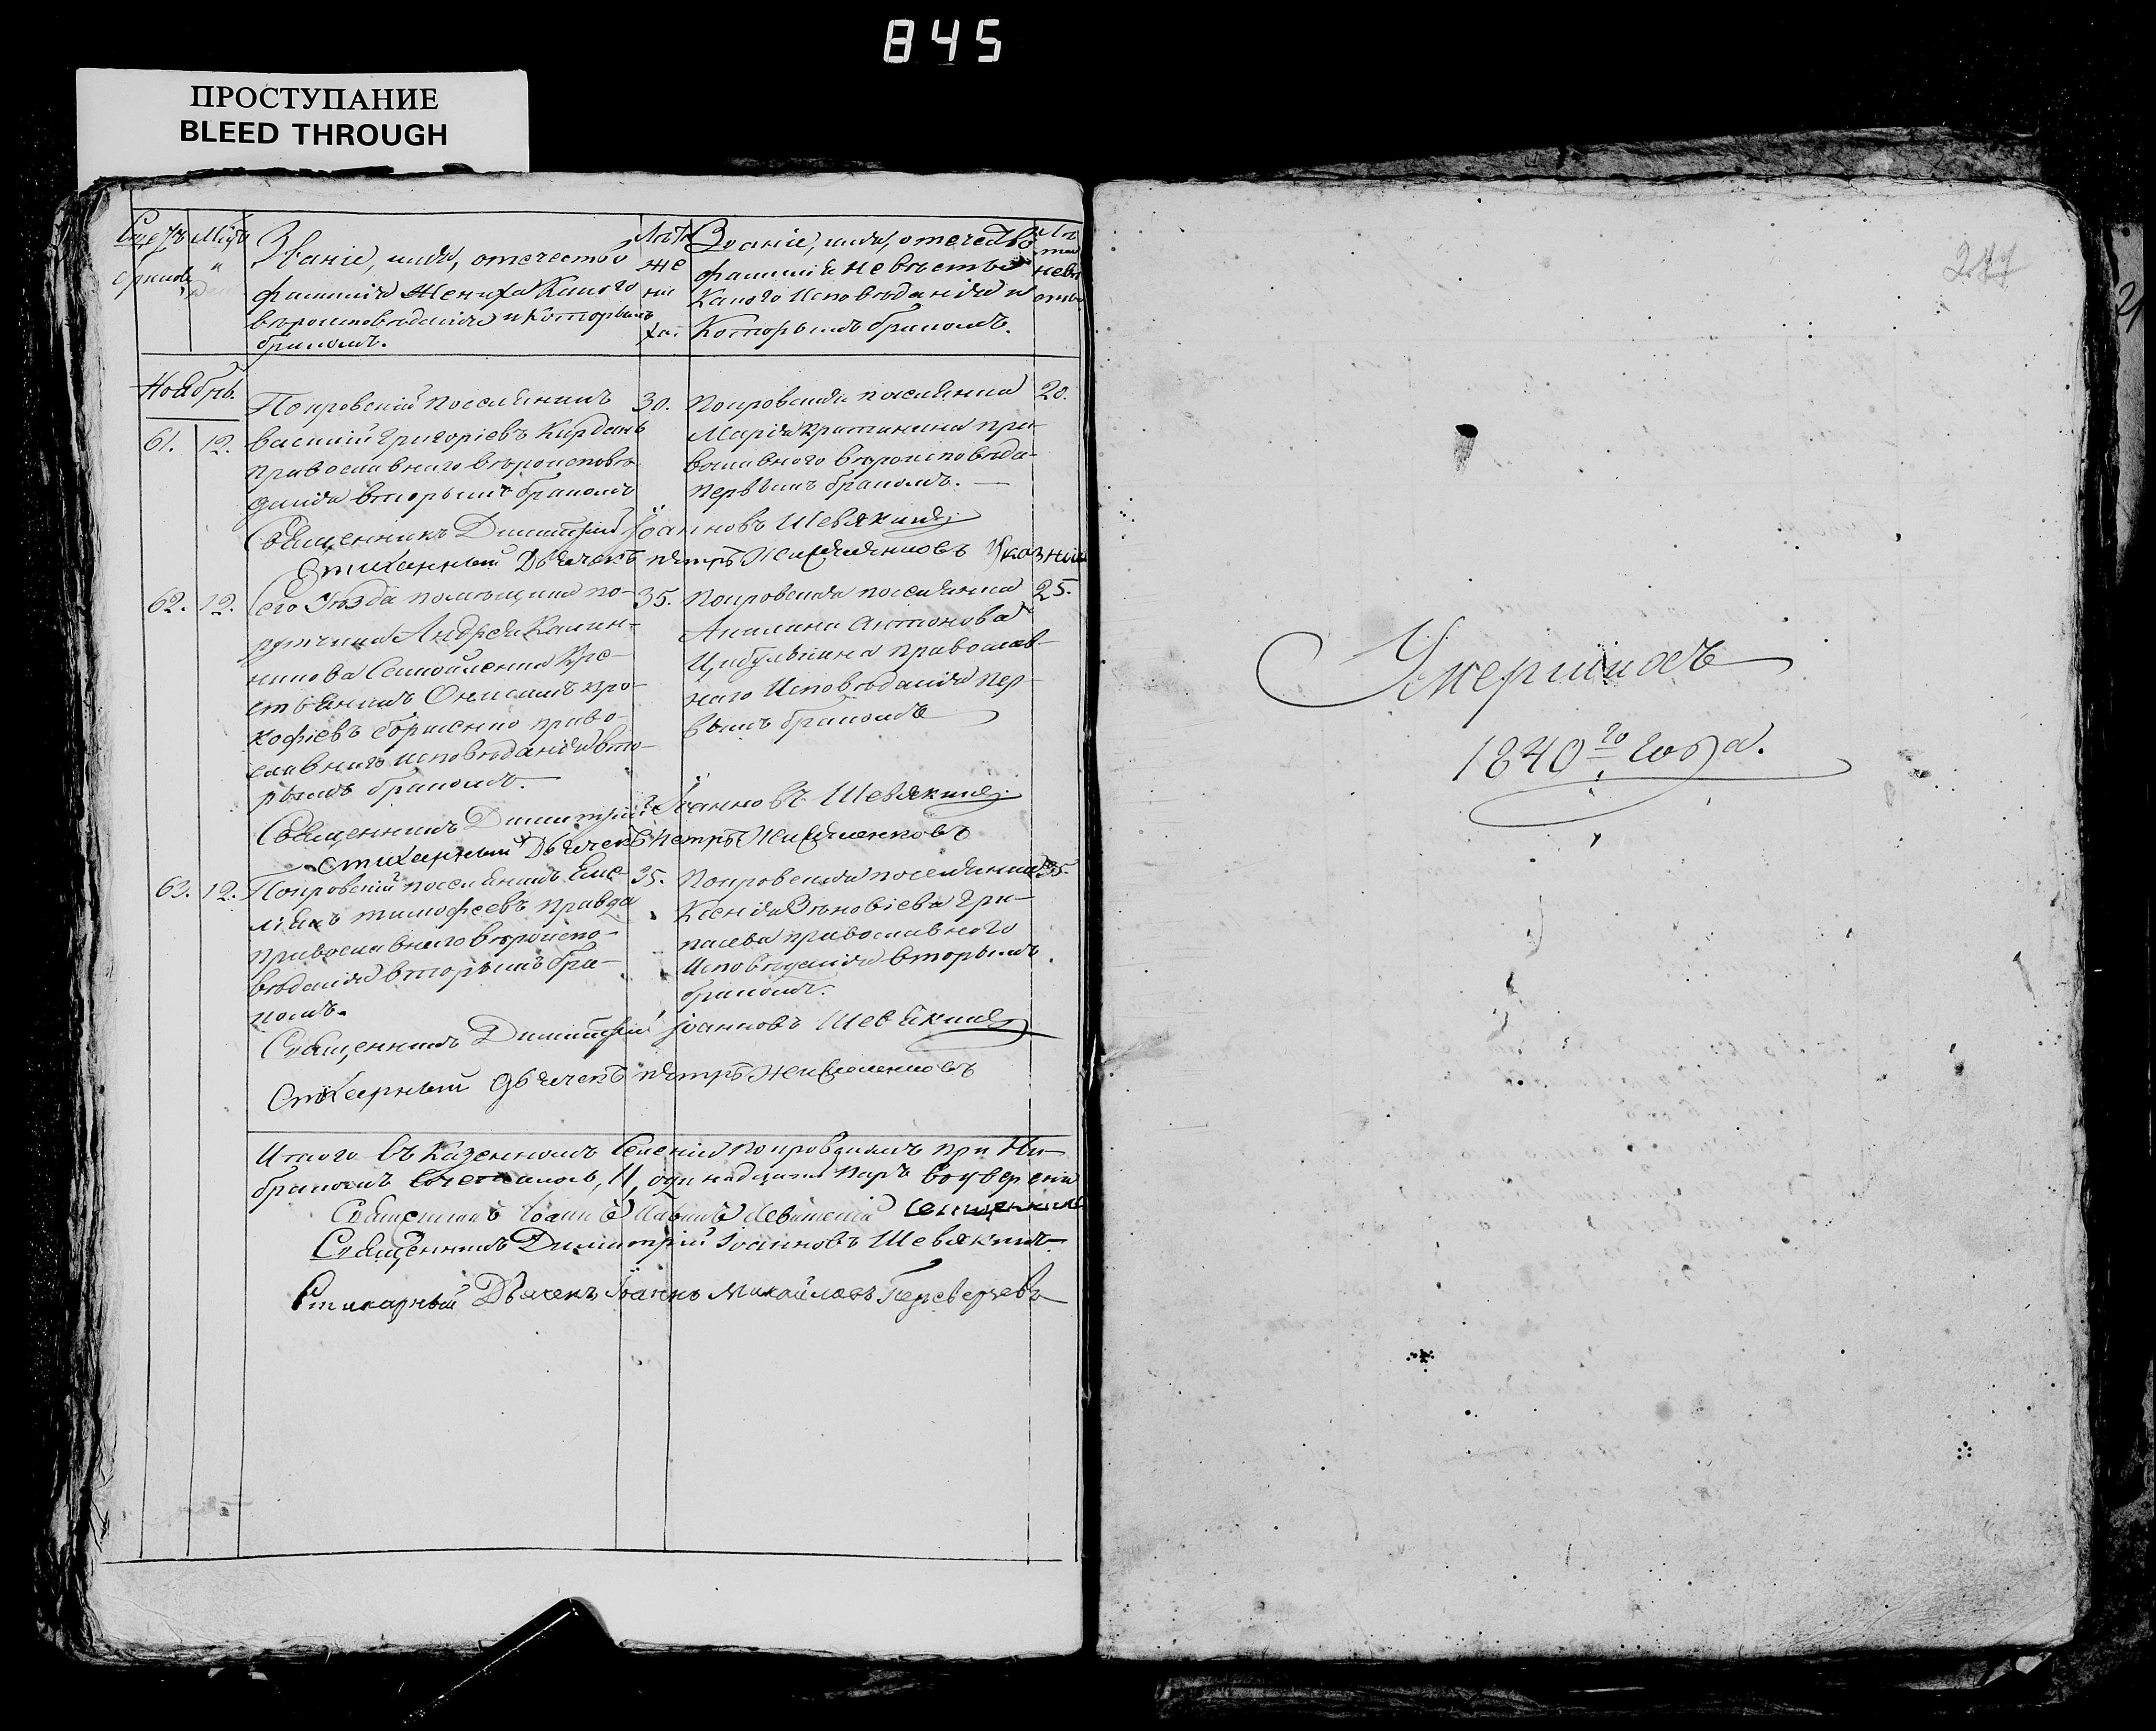 845
ПРОСТУПАНИЕ
BLEED THROUGH
Счетъ Мцъ
браковъ
Званіе, имя, отечество
фамилія жениха Какого
вѣроисповѣданія и Которымъ
бракомъ.
Лѣта
же
ни
ха.
Званіе, имя, отечество
фамилія невѣсты
Какого Исповѣданія и
Которымъ бракомъ.
Лѣ
та
невѣ
сты
Ноябрь.
61. 12.
Покровскій поселянинъ
Василій Григоріевъ
православнаго вѣроисповѣ
данія вторымъ бракомъ
30.
Покровская поселянка
Марія
вославного вѣроисповѣда-
первымъ бракомъ.
20.
Священникъ Димитрій Іоанновъ Шевякинъ
Стихарный Дьячекъ Петръ
62. 12.
Сего Уѣзда помѣщика по-
ручика Андрея Калин-
никова Кре-
стьянинъ Онисимъ Про-
кофіевъ право-
славнаго исповѣданія вто-
рымъ бракомъ.
35.
Покровская поселянка
Акилина Антонова
Цибулькина православ-
наго Исповѣданія пер-
вымъ бракомъ
25.
Священникъ Димитрій Іоанновъ Шевякинъ
Стихарный Дьячекъ Петръ
63. 12.
Покровскій поселянинъ Еме-
ліянъ Тимофеевъ Правда
православнаго вѣроиспо-
вѣданія вторымъ бра-
комъ.
35.
Покровская поселянка
Ксенія Зѣновіева
православного
Исповѣданія вторымъ
бракомъ.
35.
Священникъ Димитрій Іоанновъ Шевякинъ
Стихарный дьячекъ Петръ
Итого въ Казенномъ Селеніи Покровскомъ при
бракомъ сочеталось, 11, одинадцать паръ
Священникъ Іоаннъ Левитскій
Священникъ Димитрій Іоанновъ Шевякинъ
Стихарный Дьячекъ Іоаннъ Михайловъ Переверзевъ
277
Умершихъ
1840го года.